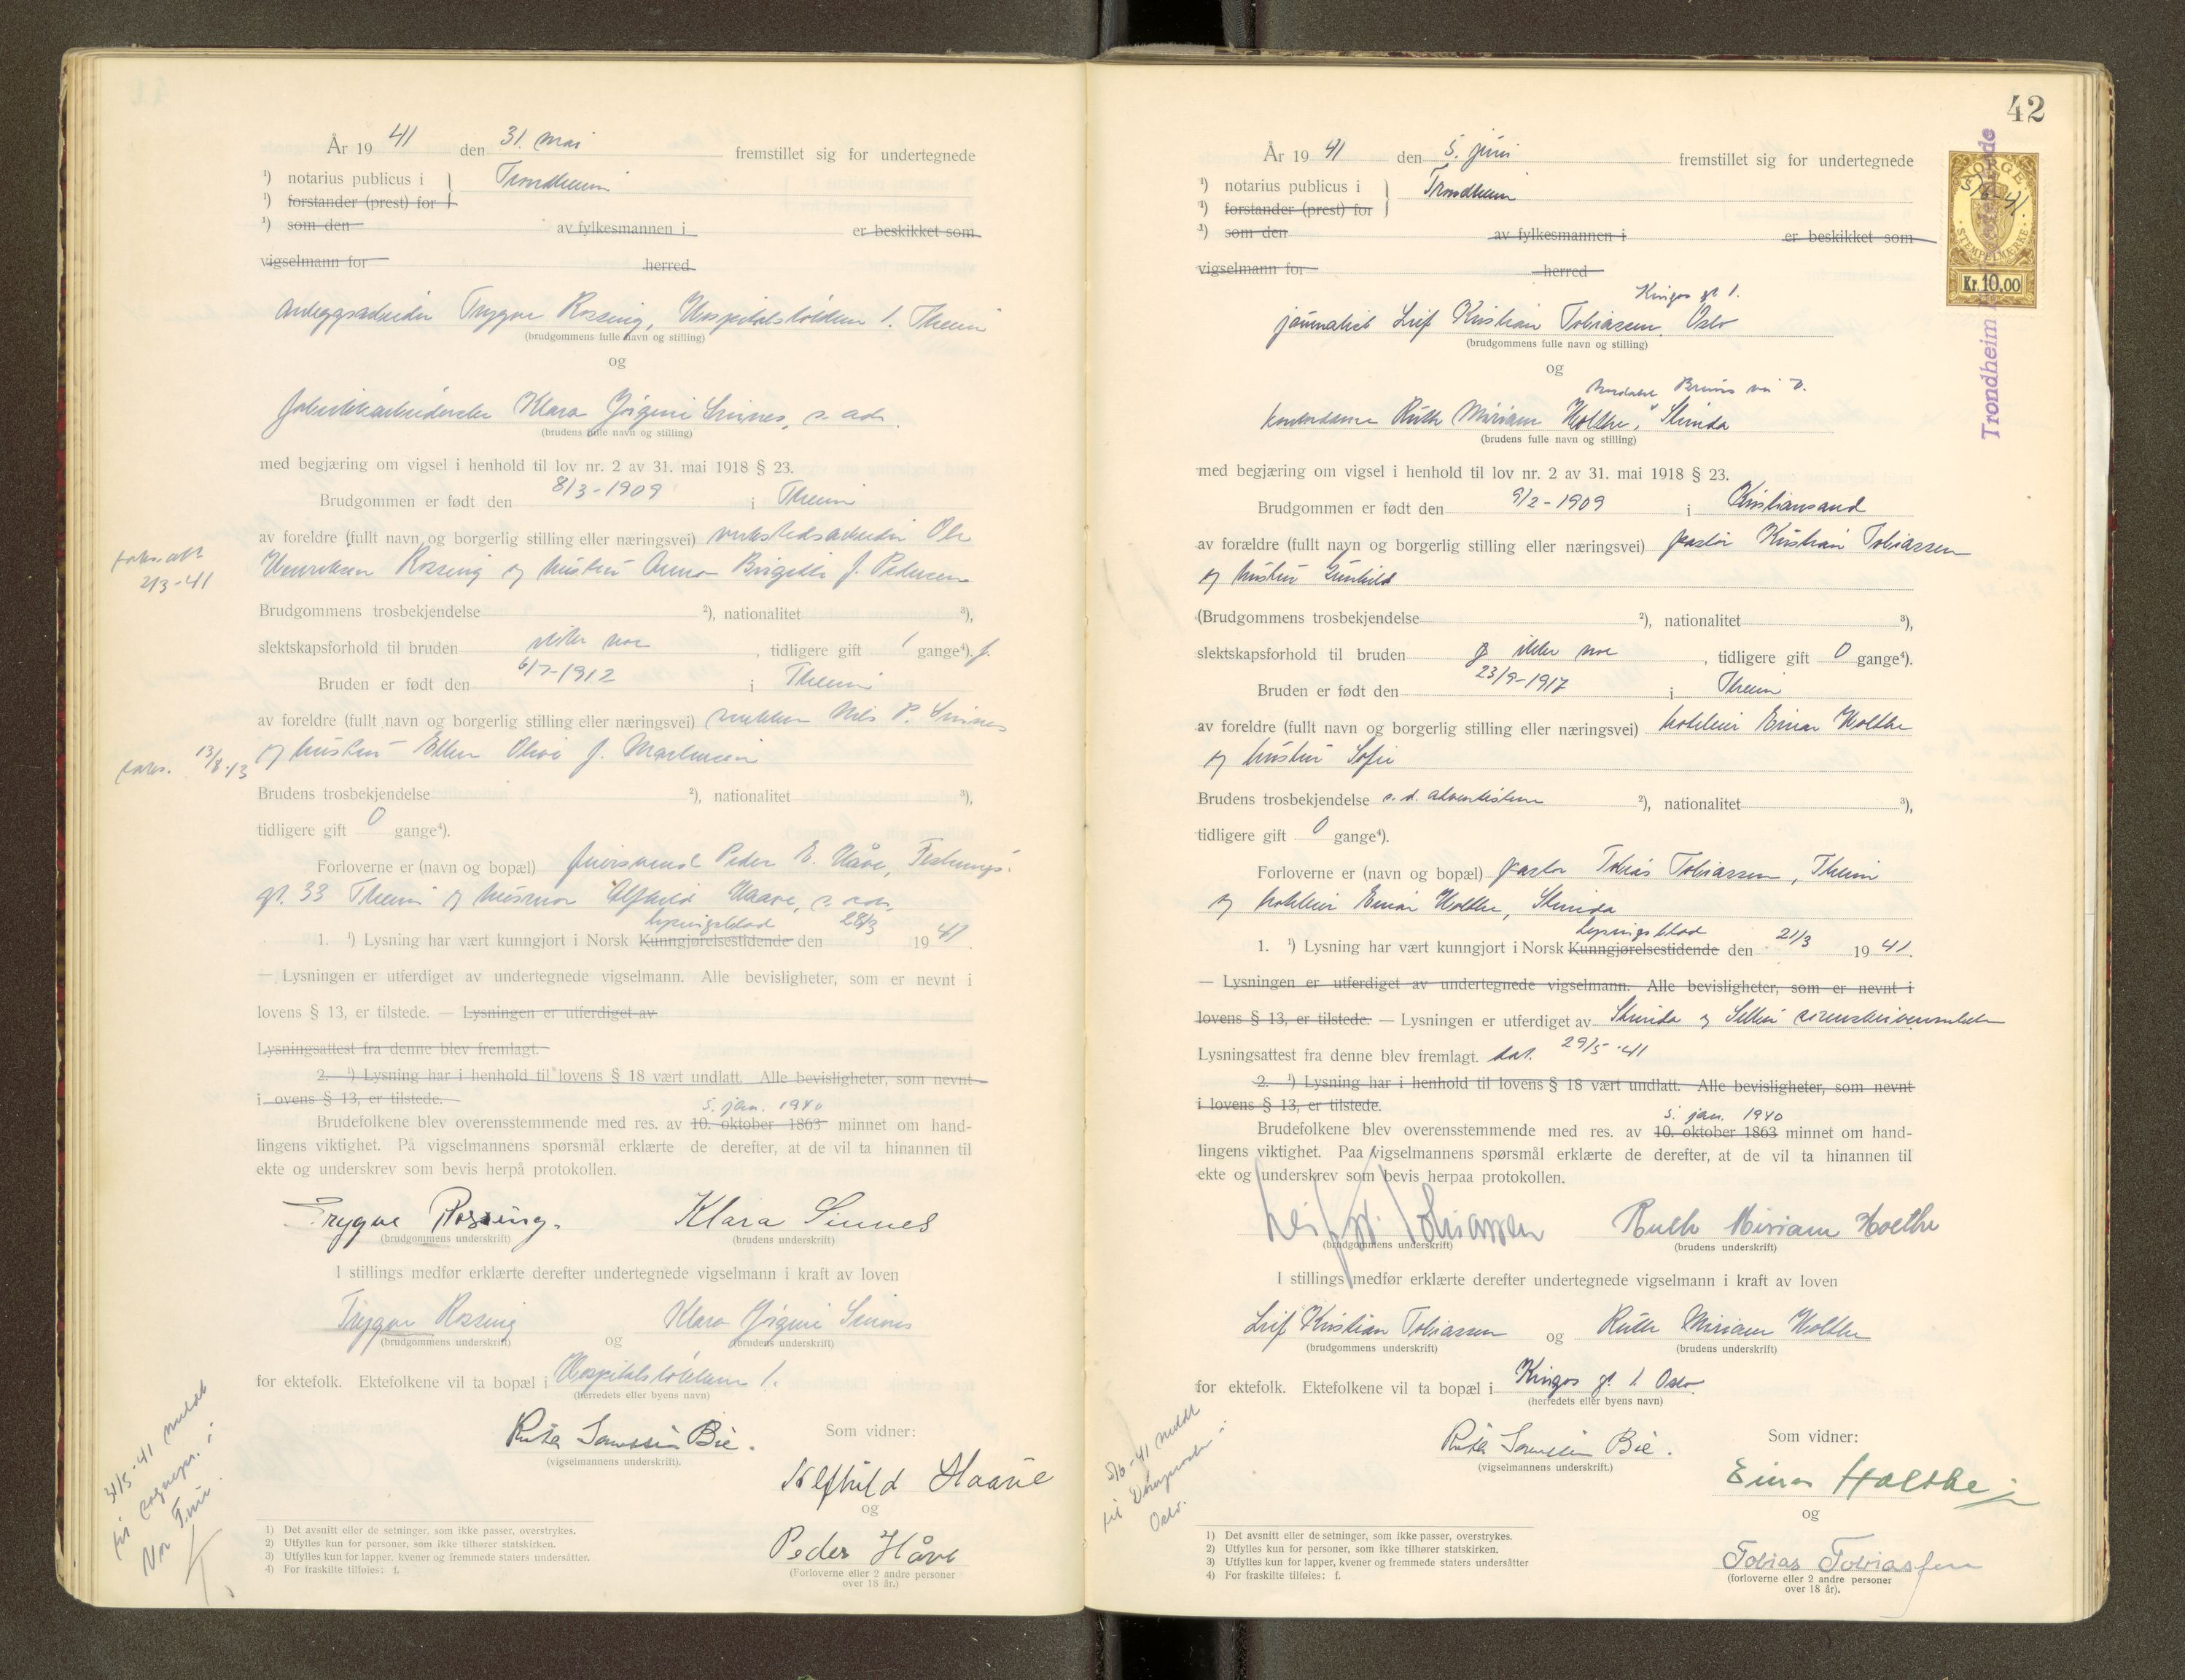 År 19 41 den 31. mai fremstillet sig for undertegnede
¹) notarius publicus i } Trondheim
¹) forstander (prest) for
¹) som den av fylkesmannen i er beskikket som
vigselmann for herred
Trygve Rossing, Hospitalsløkken 1. Theim
(brudgommens fulle navn og stilling)
og
fabrikkarbeiderske Klara Jørgine Sinnes, s. adr.
(brudens fulle navn og stilling)
med begjæring om vigsel i henhold til lov nr. 2 av 31. mai 1918 § 23.
Brudgommen er født den 8/3-1909 i Theim
av foreldre (fullt navn og borgerlig stilling eller næringsvei) verkstedsarbeider Ole
Henriksen Rossing og hustru Anna Birgitte f. Pedersen
2/3-41
Brudgommens trosbekjendelse ²), nationalitet ³),
slektskapsforhold til bruden ikke noe, tidligere gift 1 gange⁴). f.
Bruden er født den 6/7-1912 i Theim
av foreldre (fullt navn og borgerlig stilling eller næringsvei) snekker Nils P. Sinnes
og hustru Ellen Olive f. Martinsen
13/8-13
Brudens trosbekjendelse ²), nationalitet ³),
tidligere gift 0 gange⁴).
Forloverne er (navn og bopæl) feiersvend Peder E. Håve, Festnings-
gt. 33 Theim og husmor Alfhild Haave, s. adr.
lysningsblad
1. ¹) Lysning har vært kunngjort i Norsk Kunngjørelsestidende den 28/3 19 41.
— Lysningen er utferdiget av undertegnede vigselmann. Alle bevisligheter, som er nevnt i
lovens § 13, er tilstede. — Lysningen er utferdiget av
Lysningsattest fra denne blev fremlagt.
2. ¹) Lysning har i henhold til lovens § 18 vært undlatt. Alle bevisligheter, som nevnt
i ovens § 13, er tilstede.
5. jan. 1940
Brudefolkene blev overensstemmende med res. av 10. oktober 1863 minnet om hand-
lingens viktighet. På vigselmannens spørsmål erklærte de derefter, at de vil ta hinannen til
ekte og underskrev som bevis herpå protokollen.
Trygve Rossing. Klara Sinnes
(brudgommens underskrift) (brudens underskrift)
I stillings medfør erklærte derefter undertegnede vigselmann i kraft av loven
Trygve Rossing og Klara Jørgine Sinnes
(brudgommens underskrift) (brudens underskrift)
for ektefolk. Ektefolkene vil ta bopæl i Hospitalsløkken 1.
(herredets eller byens navn)
Bie.
(vigselmannens underskrift).
Som vidner:
Alfhild Haave
og
Peder Håve
(Forloverne eller 2 andre personer
over 18 år.)
31/5-41 meldt
til sognepr. i
Vor Frue
1) Det avsnitt eller de setninger, som ikke passer, overstrykes.
2) Utfylles kun for personer, som ikke tilhører statskirken.
3) Utfylles kun for lapper, kvener og fremmede staters undersåtter.
4) For fraskilte tilføies: f.
42
År 19 41 den 5. juni fremstillet sig for undertegnede
¹) notarius publicus i } Trondheim
¹) forstander (prest) for
¹) som den av fylkesmannen i er beskikket som
vigselmann for herred
NORGE
5/6 41
STEMPELMERKE
Kr. 10.00
Trondheim
Kingos gt 1.
journalist Leif Kristian Tobiassen, Oslo
(brudgommens fulle navn og stilling)
og
Bruns vei 7.
kontordame Ruth Miriam Holthe, Strinda
(brudens fulle navn og stilling)
med begjæring om vigsel i henhold til lov nr. 2 av 31. mai 1918 § 23.
Brudgommen er født den 9/2-1909 i Kristiansand
av forældre (fullt navn og borgerlig stilling eller næringsvei) pastor Kristian Tobiassen
og hustru Gunhild
(Brudgommens trosbekjendelse ²), nationalitet ³),
slektskapsforhold til bruden ikke noe, tidligere gift 0 gange⁴).
Bruden er født den 23/9-1917 i Theim
av foreldre (fullt navn og borgerlig stilling eller næringsvei) hotelleier Einar Holthe
og hustru Sofie
Brudens trosbekjendelse s. d. adventistene ²), nationalitet ³),
tidligere gift 0 gange⁴).
Forloverne er (navn og bopæl) pastor Tobias Tobiassen, Theim
og hotelleier Einar Holthe, Strinda
lysningsblad
1. ¹) Lysning har vært kunngjort i Norsk Kunngjørelsestidende den 21/3 19 41.
— Lysningen er utferdiget av undertegnede vigselmann. Alle bevisligheter, som er nevnt i
lovens § 13, er tilstede. — Lysningen er utferdiget av Strinda og Selbu sorenskriverembete
Lysningsattest fra denne blev fremlagt. dat. 29/5-41
2. ¹) Lysning har i henhold til lovens § 18 vært undlatt. Alle bevisligheter, som nevnt
i lovens § 13, er tilstede.
5. jan. 1940
Brudefolkene blev overensstemmende med res. av 10. oktober 1863 minnet om hand-
lingens viktighet. Paa vigselmannens spørsmål erklærte de derefter, at de vil ta hinannen til
ekte og underskrev som bevis herpaa protokollen.
Leif Kr. Tobiassen Ruth Miriam Holthe
(brudgommens underskrift) (brudens underskrift)
I stillings medfør erklærte derefter undertegnede vigselmann i kraft av loven
Leif Kristian Tobiassen og Ruth Miriam Holthe
(brudgommens underskrift) (brudens underskrift)
for ektefolk. Ektefolkene vil ta bopæl i Kingos gt. 1 Oslo.
(herredets eller byens navn)
Bie.
(vigselmannens underskrift.)
Som vidner:
Einar Holthe
og
Tobias Tobiassen
(forloverne eller 2 andre personer
over 18 år).
5/6-41 meldt
til Domprosten i
Oslo.
1) Det avsnitt eller de setninger, som ikke passer, overstrykes.
2) Utfylles kun for personer, som ikke tilhører statskirken.
3) Utfylles kun for lapper, kvener og fremmede staters undersåtter
4) For fraskilte tilføies: f.